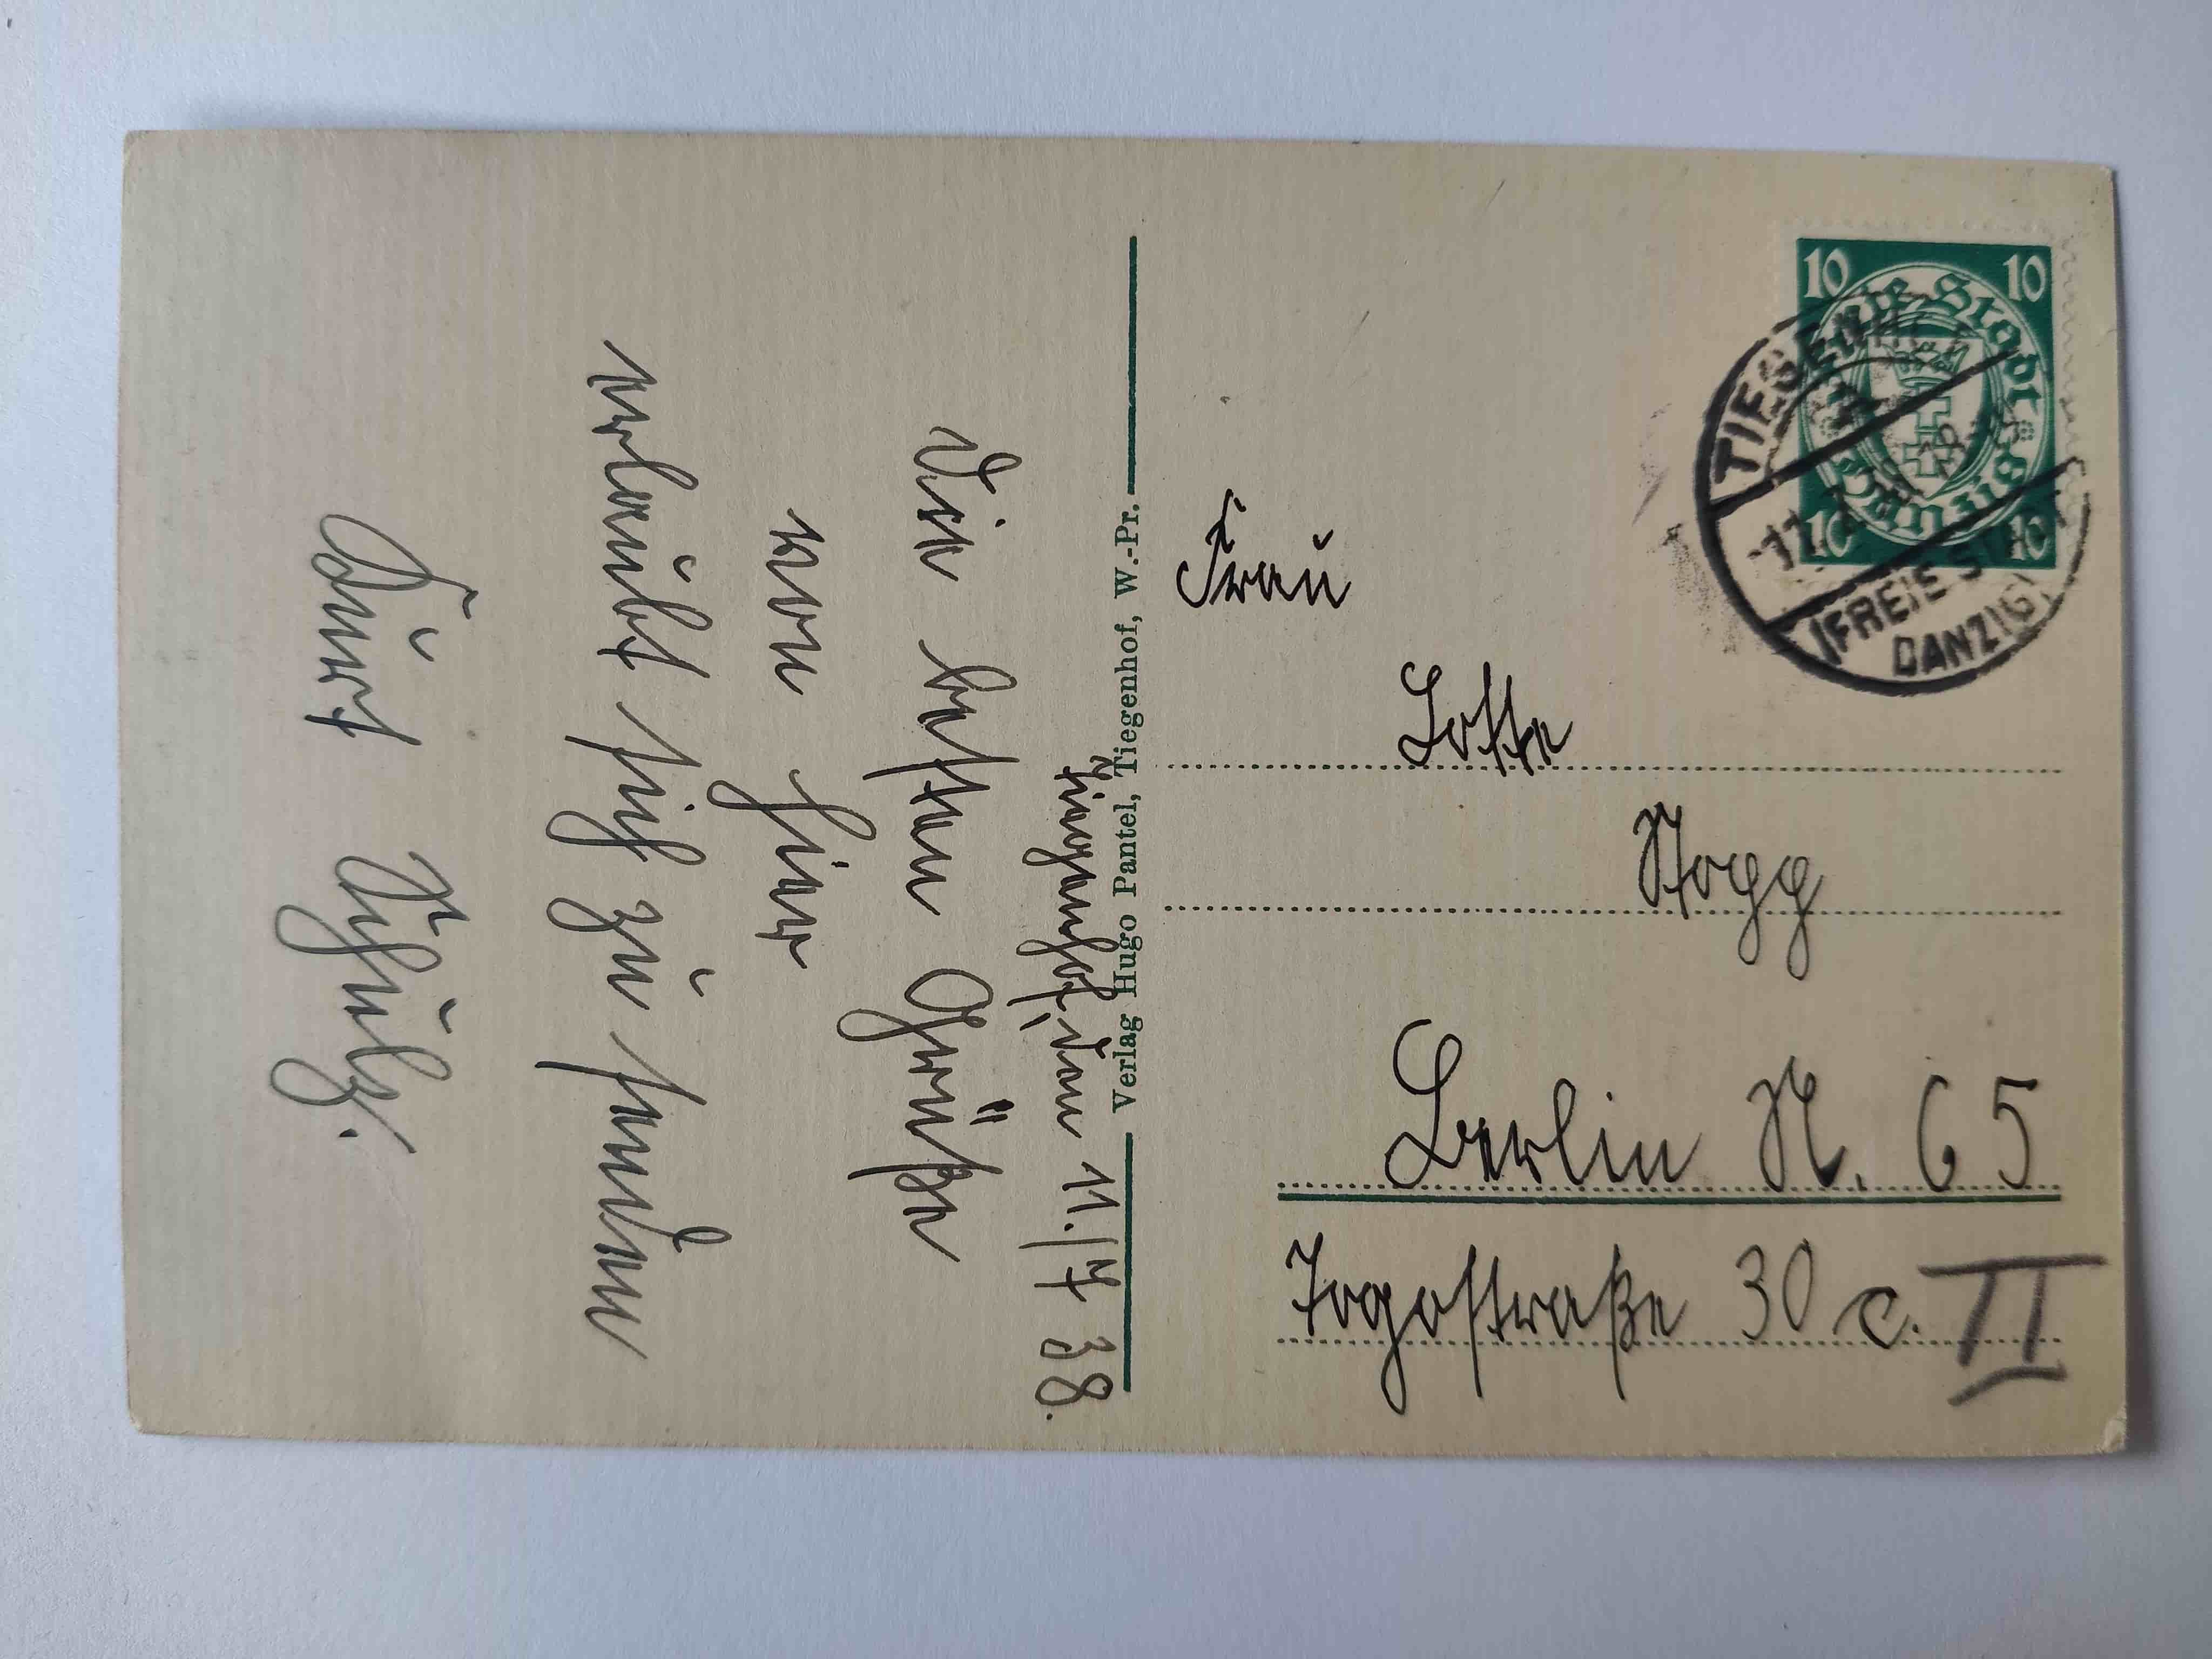 Tiegenhof, den 11./7 38.
Die besten Grüße
von hier
erlaubt sich zu senden
Kurt Schulz.
Verlag Hugo Pantel, Tiegenhof, W.-Pr.
10 10
Freie Stadt Danzig
10 10
TIEGENHOF
11.7.38
FREIE STADT
DANZIG
Frau
Lotte
Nogg
Berlin N. 65
Togostraße 30 c. II